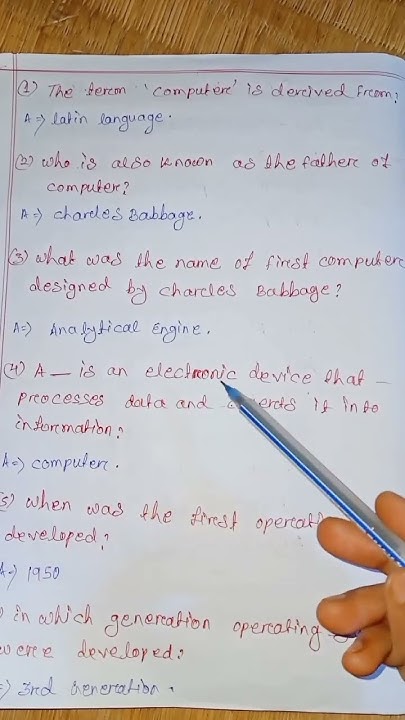 (1) The term 'computer' is derived from?
A=> latin language.
(2) who is also known as the father of
computer?
A=) charles Babbage.
(3) what was the name of first computer
designed by charles Babbage?
A=) Analytical Engine.
(4) A — is an electronic device that —
processes data and it into
information?
A=) computer.
5) when was the first
developed?
A=) 1950
in which generation operating
were developed?
=) 3rd Generation.